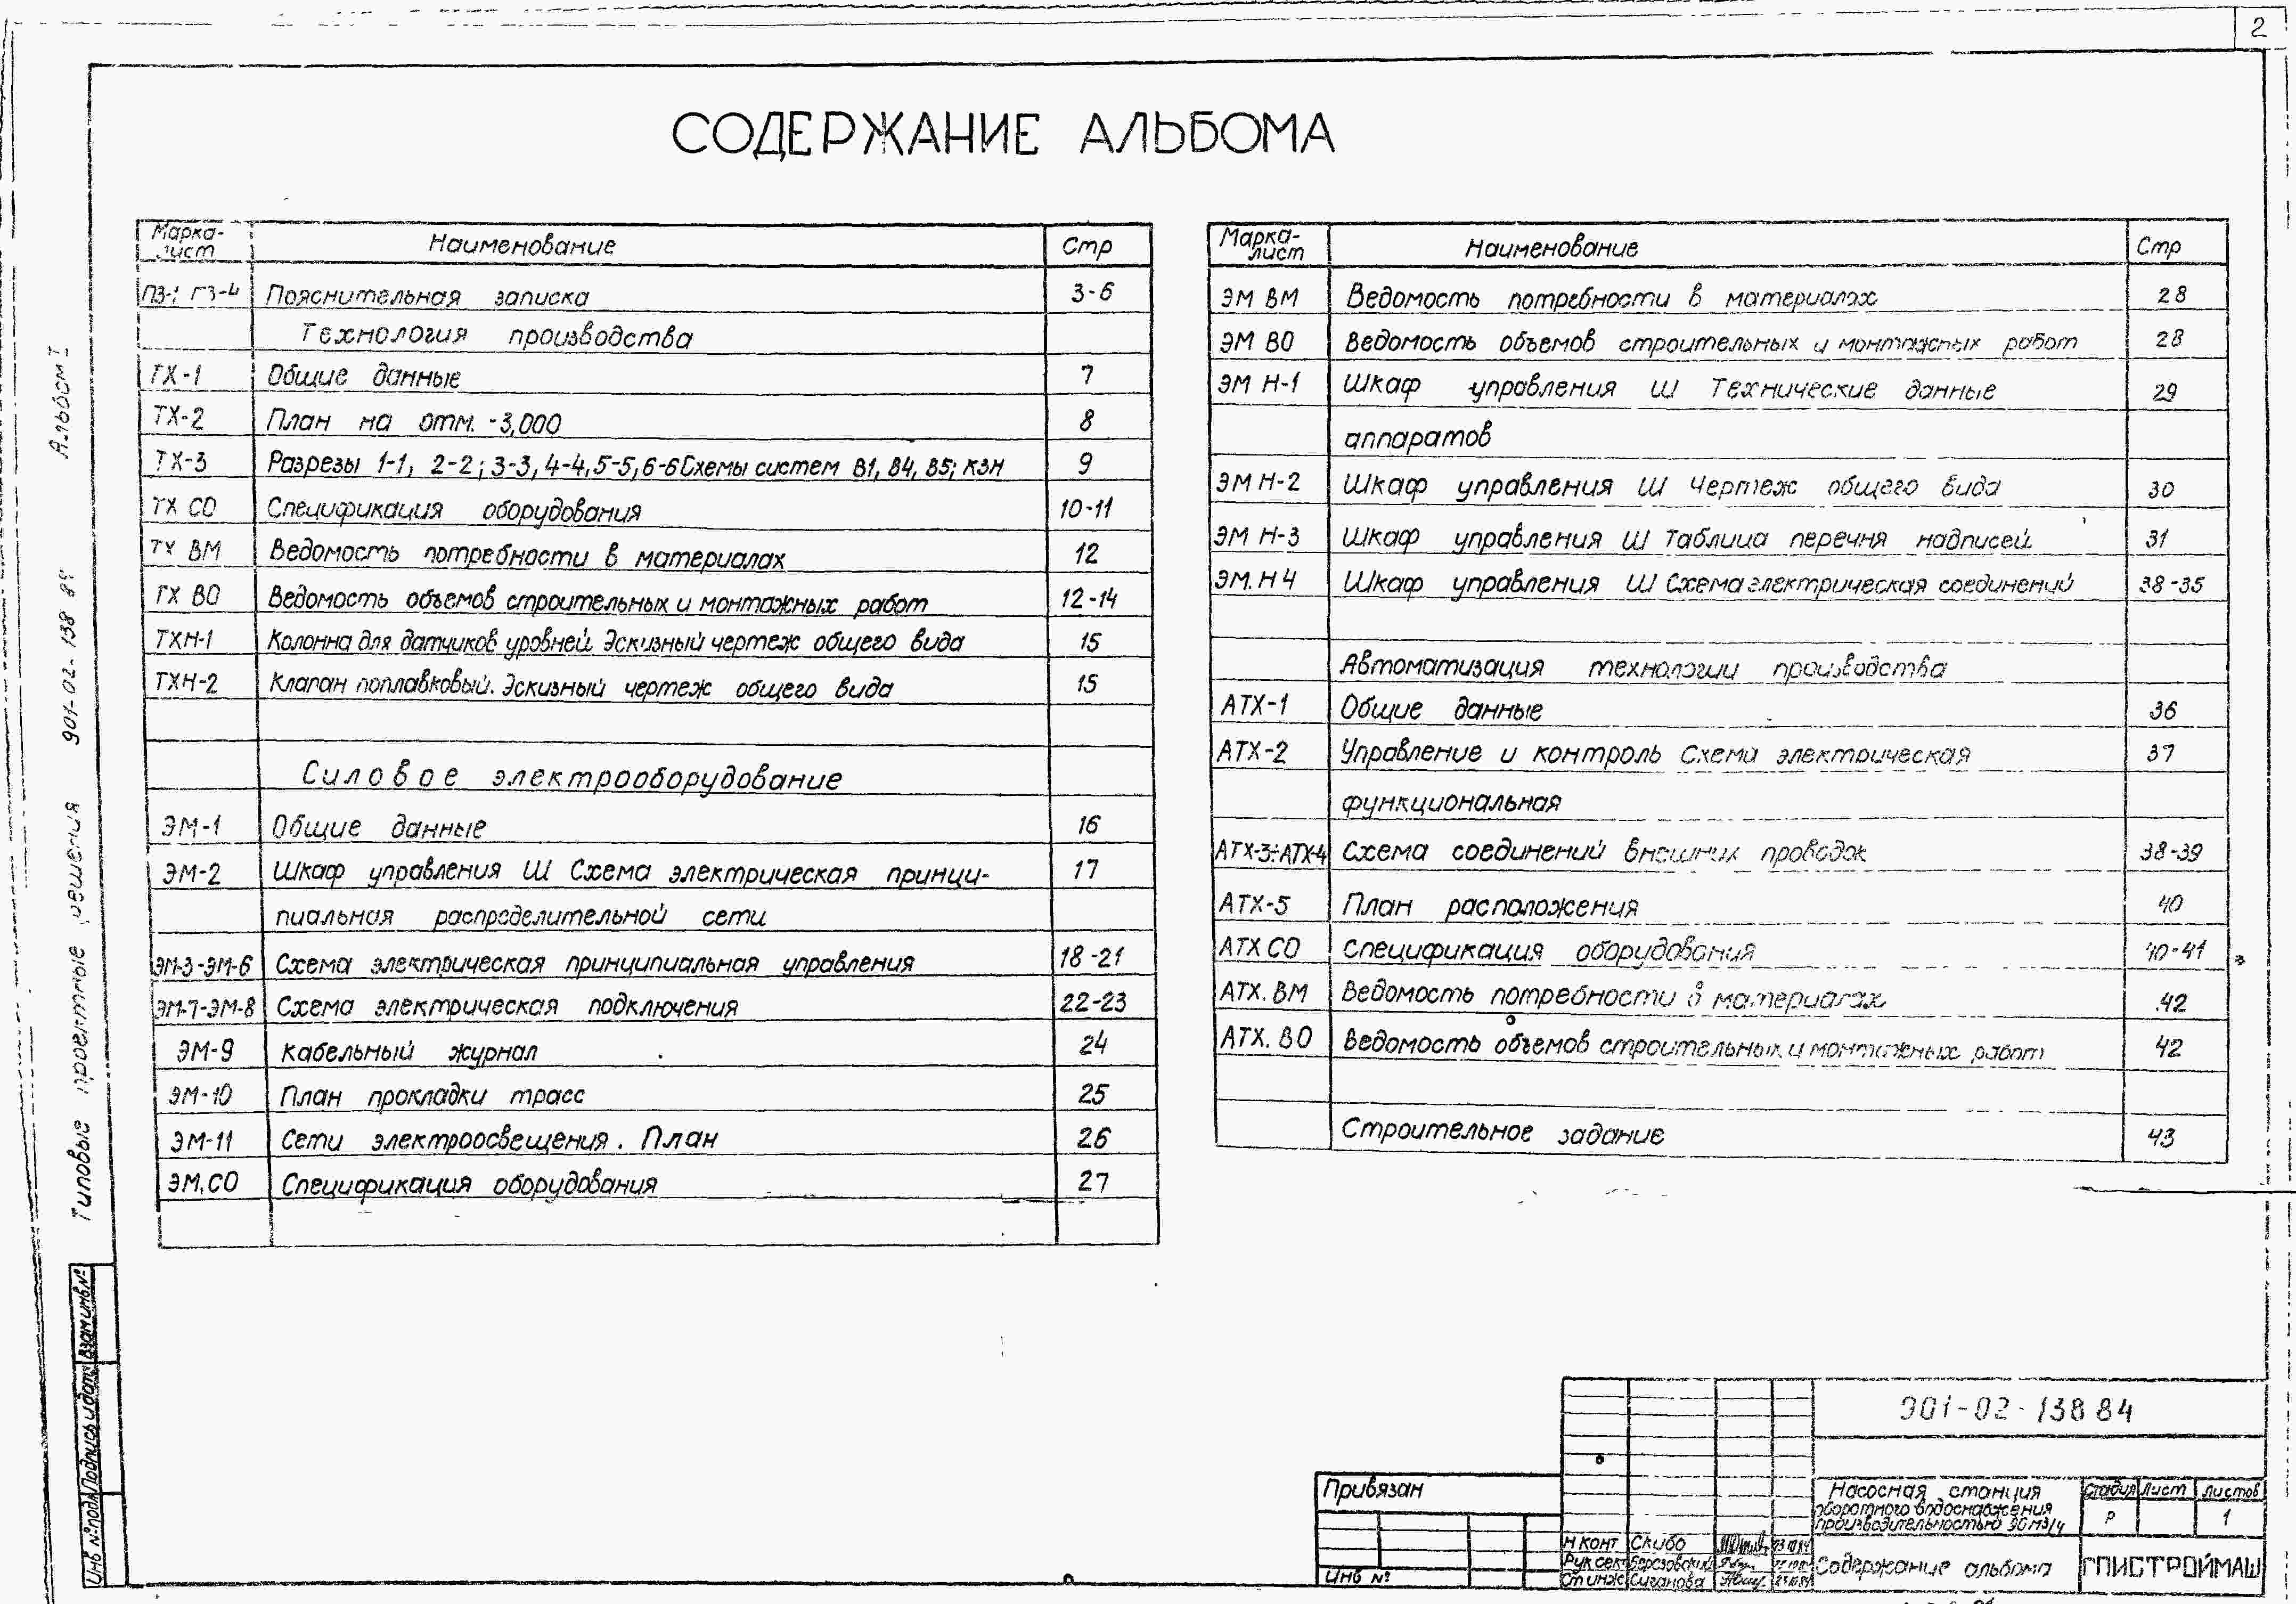 2
СОДЕРЖАНИЕ АЛЬБОМА
Марка-лист Наименование Стр
Пояснительная записка 3-6
Технология производства
ТХ-1 Общие данные 7
ТХ-2 План на отм. -3,000 8
ТХ-3 Разрезы 1-1, 2-2; 3-3, 4-4, 5-5, 6-6 Схемы систем В1, В4, В5; КЗН 9
ТХ СО Спецификация оборудования 10-11
ТХ ВМ Ведомость потребности в материалах 12
ТХ ВО Ведомость объемов строительных и монтажных работ 12-14
ТХН-1 Колонна для датчиков уровней. Эскизный чертеж общего вида 15
ТХН-2 Клапан поплавковый. Эскизный чертеж общего вида 15
Силовое электрооборудование
ЭМ-1 Общие данные 16
ЭМ-2 Шкаф управления Ш Схема электрическая принци- 17
пиальная распределительной сети
ЭМ-3-ЭМ-6 Схема электрическая принципиальная управления 18-21
ЭМ-7-ЭМ-8 Схема электрическая подключения 22-23
ЭМ-9 Кабельный журнал 24
ЭМ-10 План прокладки трасс 25
ЭМ-11 Сети электроосвещения. План 26
ЭМ.СО Спецификация оборудования 27
Марка-лист Наименование Стр
ЭМ ВМ Ведомость потребности в материалах 28
ЭМ ВО Ведомость объемов строительных и монтажных работ 28
ЭМ Н-1 Шкаф управления Ш Технические данные 29
аппаратов
ЭМ Н-2 Шкаф управления Ш Чертеж общего вида 30
ЭМ Н-3 Шкаф управления Ш Таблица перечня надписей 31
ЭМ.Н4 Шкаф управления Ш Схема электрическая соединений 38-35
Автоматизация технологии производства
АТХ-1 Общие данные 36
АТХ-2 Управление и контроль Схема электрическая 37
функциональная
АТХ-3÷АТХ-4 Схема соединений внешних проводок 38-39
АТХ-5 План расположения 40
АТХ СО Спецификация оборудования 40-41
АТХ. ВМ Ведомость потребности в материалах 42
АТХ. ВО Ведомость объемов строительных и монтажных работ 42
Строительное задание 43
Альбом I
Типовые проектные решения 901-02-138 84
Взам инв №
Подпись и дата
Инв № подл
Привязан
Инв №
901-02-138 84
Насосная станция
оборотного водоснабжения
производительностью
Стадия Лист Листов
Р 1
Н конт Скибо
Рук сект Березовский
Ст инж Суганова
Содержание альбома
ГПИСТРОЙМАШ